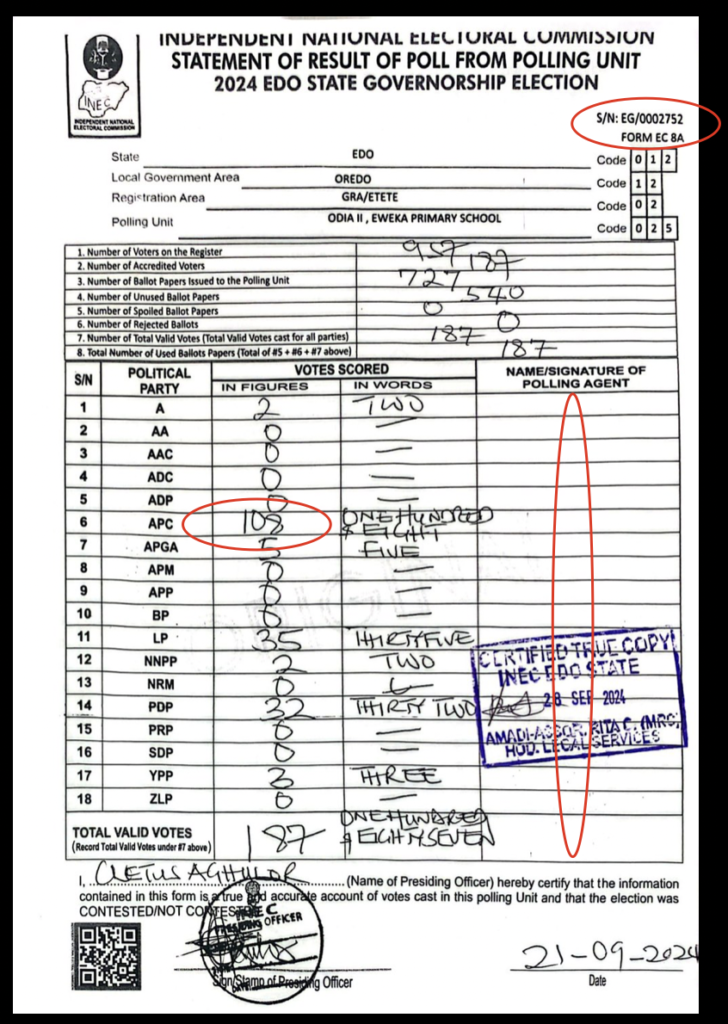 INDEPENDENT NATIONAL ELECTORAL COMMISSION
STATEMENT OF RESULT OF POLL FROM POLLING UNIT
2024 EDO STATE GOVERNORSHIP ELECTION
INEC
INDEPENDENT NATIONAL
ELECTORAL COMMISSION
S/N: EG/0002752
FORM EC 8A
State EDO Code 0 1 2
Local Government Area OREDO Code 1 2
Registration Area GRA/ETETE Code 0 2
Polling Unit ODIA II , EWEKA PRIMARY SCHOOL Code 0 2 5
1. Number of Voters on the Register 957
2. Number of Accredited Voters 187
3. Number of Ballot Papers Issued to the Polling Unit 727
4. Number of Unused Ballot Papers 540
5. Number of Spoiled Ballot Papers 0
6. Number of Rejected Ballots 0
7. Number of Total Valid Votes (Total Valid Votes cast for all parties) 187
8. Total Number of Used Ballots Papers (Total of #5 + #6 + #7 above) 187
S/N POLITICAL PARTY VOTES SCORED NAME/SIGNATURE OF POLLING AGENT
IN FIGURES IN WORDS
1 A 2 TWO
2 AA 0 —
3 AAC 0 —
4 ADC 0 —
5 ADP 0 —
6 APC 108 ONE HUNDRED & EIGHT
7 APGA 5 FIVE
8 APM 0 —
9 APP 0 —
10 BP 0 —
11 LP 35 THIRTYFIVE
12 NNPP 2 TWO
13 NRM 0
14 PDP 32 THIRTY TWO
15 PRP 0 —
16 SDP 0 —
17 YPP 3 THREE
18 ZLP 0 —
CERTIFIED TRUE COPY
INEC EDO STATE
28 SEP 2024
AMADI-ASSOR, RITA C. (MRS)
HOD. LEGAL SERVICES
TOTAL VALID VOTES 187 ONE HUNDRED & EIGHTYSEVEN
(Record Total Valid Votes under #7 above)
I, CLETUS AGHULOR (Name of Presiding Officer) hereby certify that the information
contained in this form is a true and accurate account of votes cast in this polling Unit and that the election was
CONTESTED/NOT CONTESTED
PRESIDING OFFICER
21-09-2024
Sign/Stamp of Presiding Officer Date